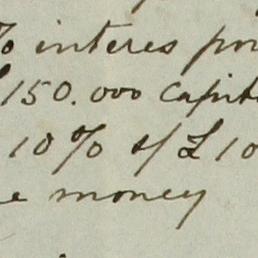 % interes
150.000 capit
10% s/ £ 10
money